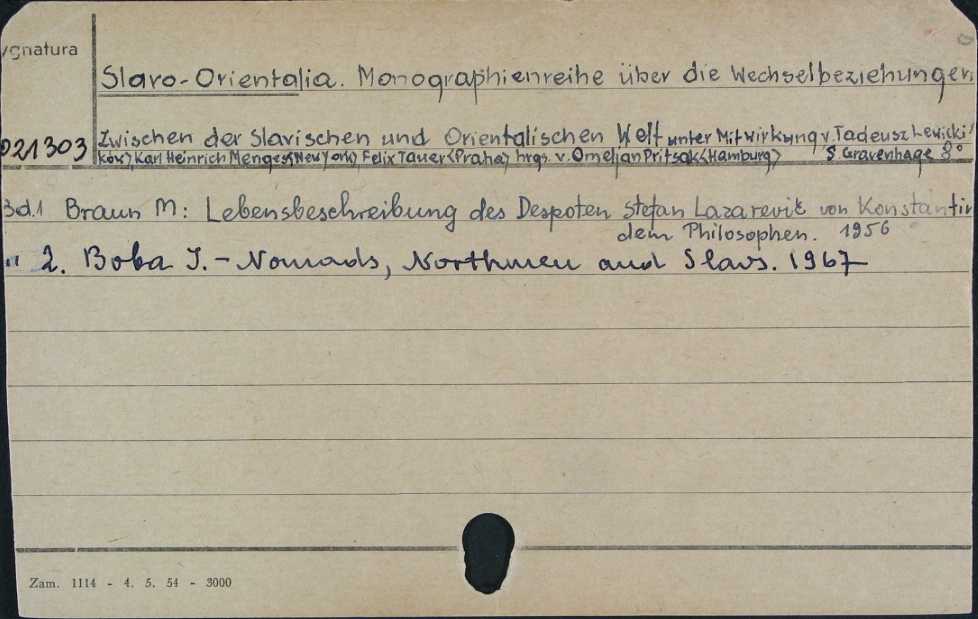 ygnatura
Slavo-Orientalia. Monographienreihe über die Wechselbeziehungen
021303 Zwischen der Slavischen und Orientalischen Welt unter Mitwirkung v. Tadeusz Lewicki/
ków), Karl Heinrich Menges<New York>, Felix Tauer<Praha>, hrgs. v. Omeljan Pritsak<Hamburg> S Gravenhage 8°
Bd.1 Braun M: Lebensbeschreibung des Despoten Stefan Lazarević von Konstantin
dem Philosophen. 1956
" 2. Boba I. - Nomads, Northmen and Slavs. 1967
Zam. 1114 - 4. 5. 54 - 3000